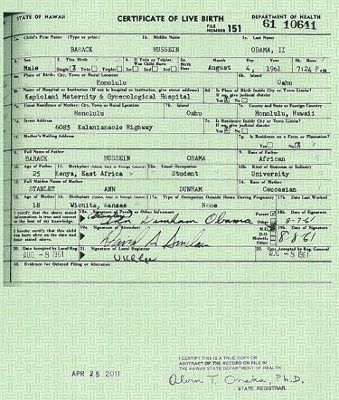 STATE OF HAWAII CERTIFICATE OF LIVE BIRTH DEPARTMENT OF HEALTH
FILE NUMBER 151 61 10641
1a. Child's First Name (Type or print) 1b. Middle Name 1c. Last Name
BARACK HUSSEIN OBAMA, II
2. Sex 3. This Birth 4. If Twin or Triplet, Was Child Born 5a. Birth Date Month Day Year 5b. Hour
Male Single X Twin Triplet 1st 2nd 3rd August 4, 1961 7:24 P.M.
6a. Place of Birth: City, Town or Rural Location 6b. Island
Honolulu Oahu
6c. Name of Hospital or Institution (If not in hospital or institution, give street address) 6d. Is Place of Birth Inside City or Town Limits? If no, give judicial district
Kapiolani Maternity & Gynecological Hospital Yes X No
7a. Usual Residence of Mother: City, Town or Rural Location 7b. Island 7c. County and State or Foreign Country
Honolulu Oahu Honolulu, Hawaii
7d. Street Address 7e. Is Residence Inside City or Town Limits? If no, give judicial district
6085 Kalanianaole Highway Yes X No
7f. Mother's Mailing Address 7g. Is Residence on a Farm or Plantation?
Yes No X
8. Full Name of Father 9. Race of Father
BARACK HUSSEIN OBAMA African
10. Age of Father 11. Birthplace 12a. Usual Occupation 12b. Kind of Business or Industry
25 Kenya, East Africa Student University
13. Full Maiden Name of Mother 14. Race of Mother
STANLEY ANN DUNHAM Caucasian
15. Age of Mother 16. Birthplace 17a. Type of Occupation Outside Home During Pregnancy 17b. Date Last Worked
18 Wichita, Kansas None
I certify that the above stated information is true and correct to the best of my knowledge. 18a. Signature of Parent or Other Informant Parent Other 18b. Date of Signature
Dunham Obama 8-7-61
I hereby certify that this child was born alive on the date and hour stated above. 19a. Signature of Attendant M.D. D.O. Midwife Other 19b. Date of Signature
David A Sinclair 8 8 61
20. Date Accepted by Local Reg. 21. Signature of Local Registrar 22. Date Accepted by Reg. General
AUG -8 1961 U K L Lee AUG -8 1961
23. Evidence for Delayed Filing or Alteration
APR 25 2011
I CERTIFY THIS IS A TRUE COPY OR
ABSTRACT OF THE RECORD ON FILE IN
THE HAWAII STATE DEPARTMENT OF HEALTH
Alvin T. Onaka, Ph.D.
STATE REGISTRAR